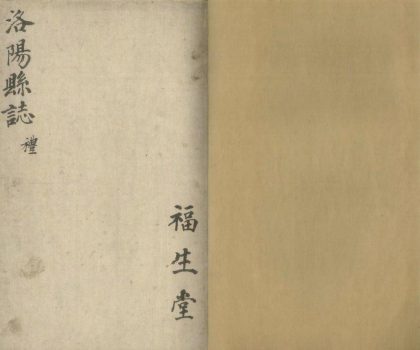 洛陽縣誌
禮
福生堂